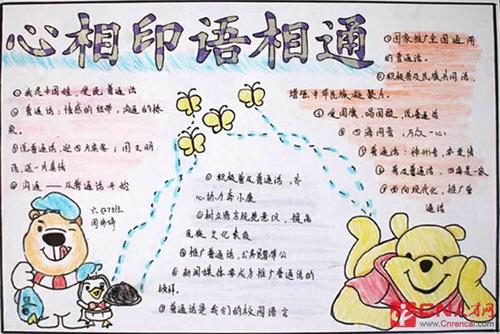 心相印语相通
①我是中国娃,爱说普通话
②普通话:情感的纽带,沟通的桥梁。
③说普通话,迎四方宾客;用文明语,送一片真情
④沟通——从普通话开始
六
班
①积极普及普通话,齐
心协力奔小康
②树立语言规范意识,提高
民族文化素质
③推广普通话,公务员带
④新闻媒体要成为推广普通话的
榜样。
⑤普通话是我们的校园语言
①国家推广全国通用
的普通话。
②积极普及民族共同语,
增强中华民族凝聚力。
③爱国旗,唱国歌,说普通话
④四海同音,万众一心
⑤普通话:神州音,华夏情
⑥普及普通话,四海是一家
⑦面向现代化,推广普
通话
CN人才网
www.Cnrencai.com